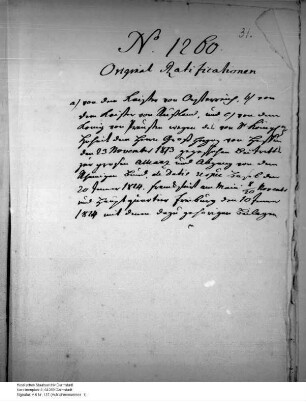 31.
No 1260
Original Ratificationen
a) von dem Kaiser von Oesterreich, b) von
dem Kaiser von Rußland, und c) von dem
König von Preußen wegen des von Sr Königl.
Hoheit dem Herrn Großherzog von Hessen
den 23 November 1813 Beitritts
zur großen Allianz und Abgang von dem
Rheinischen Bund, de dato Basel den
20 Januar 1814. Frankfurt am Main
und Hauptquartier Freiburg den 10 Januar
1814 mit denen dazu gehörigen Beilagen
Hessisches Staatsarchiv Darmstadt